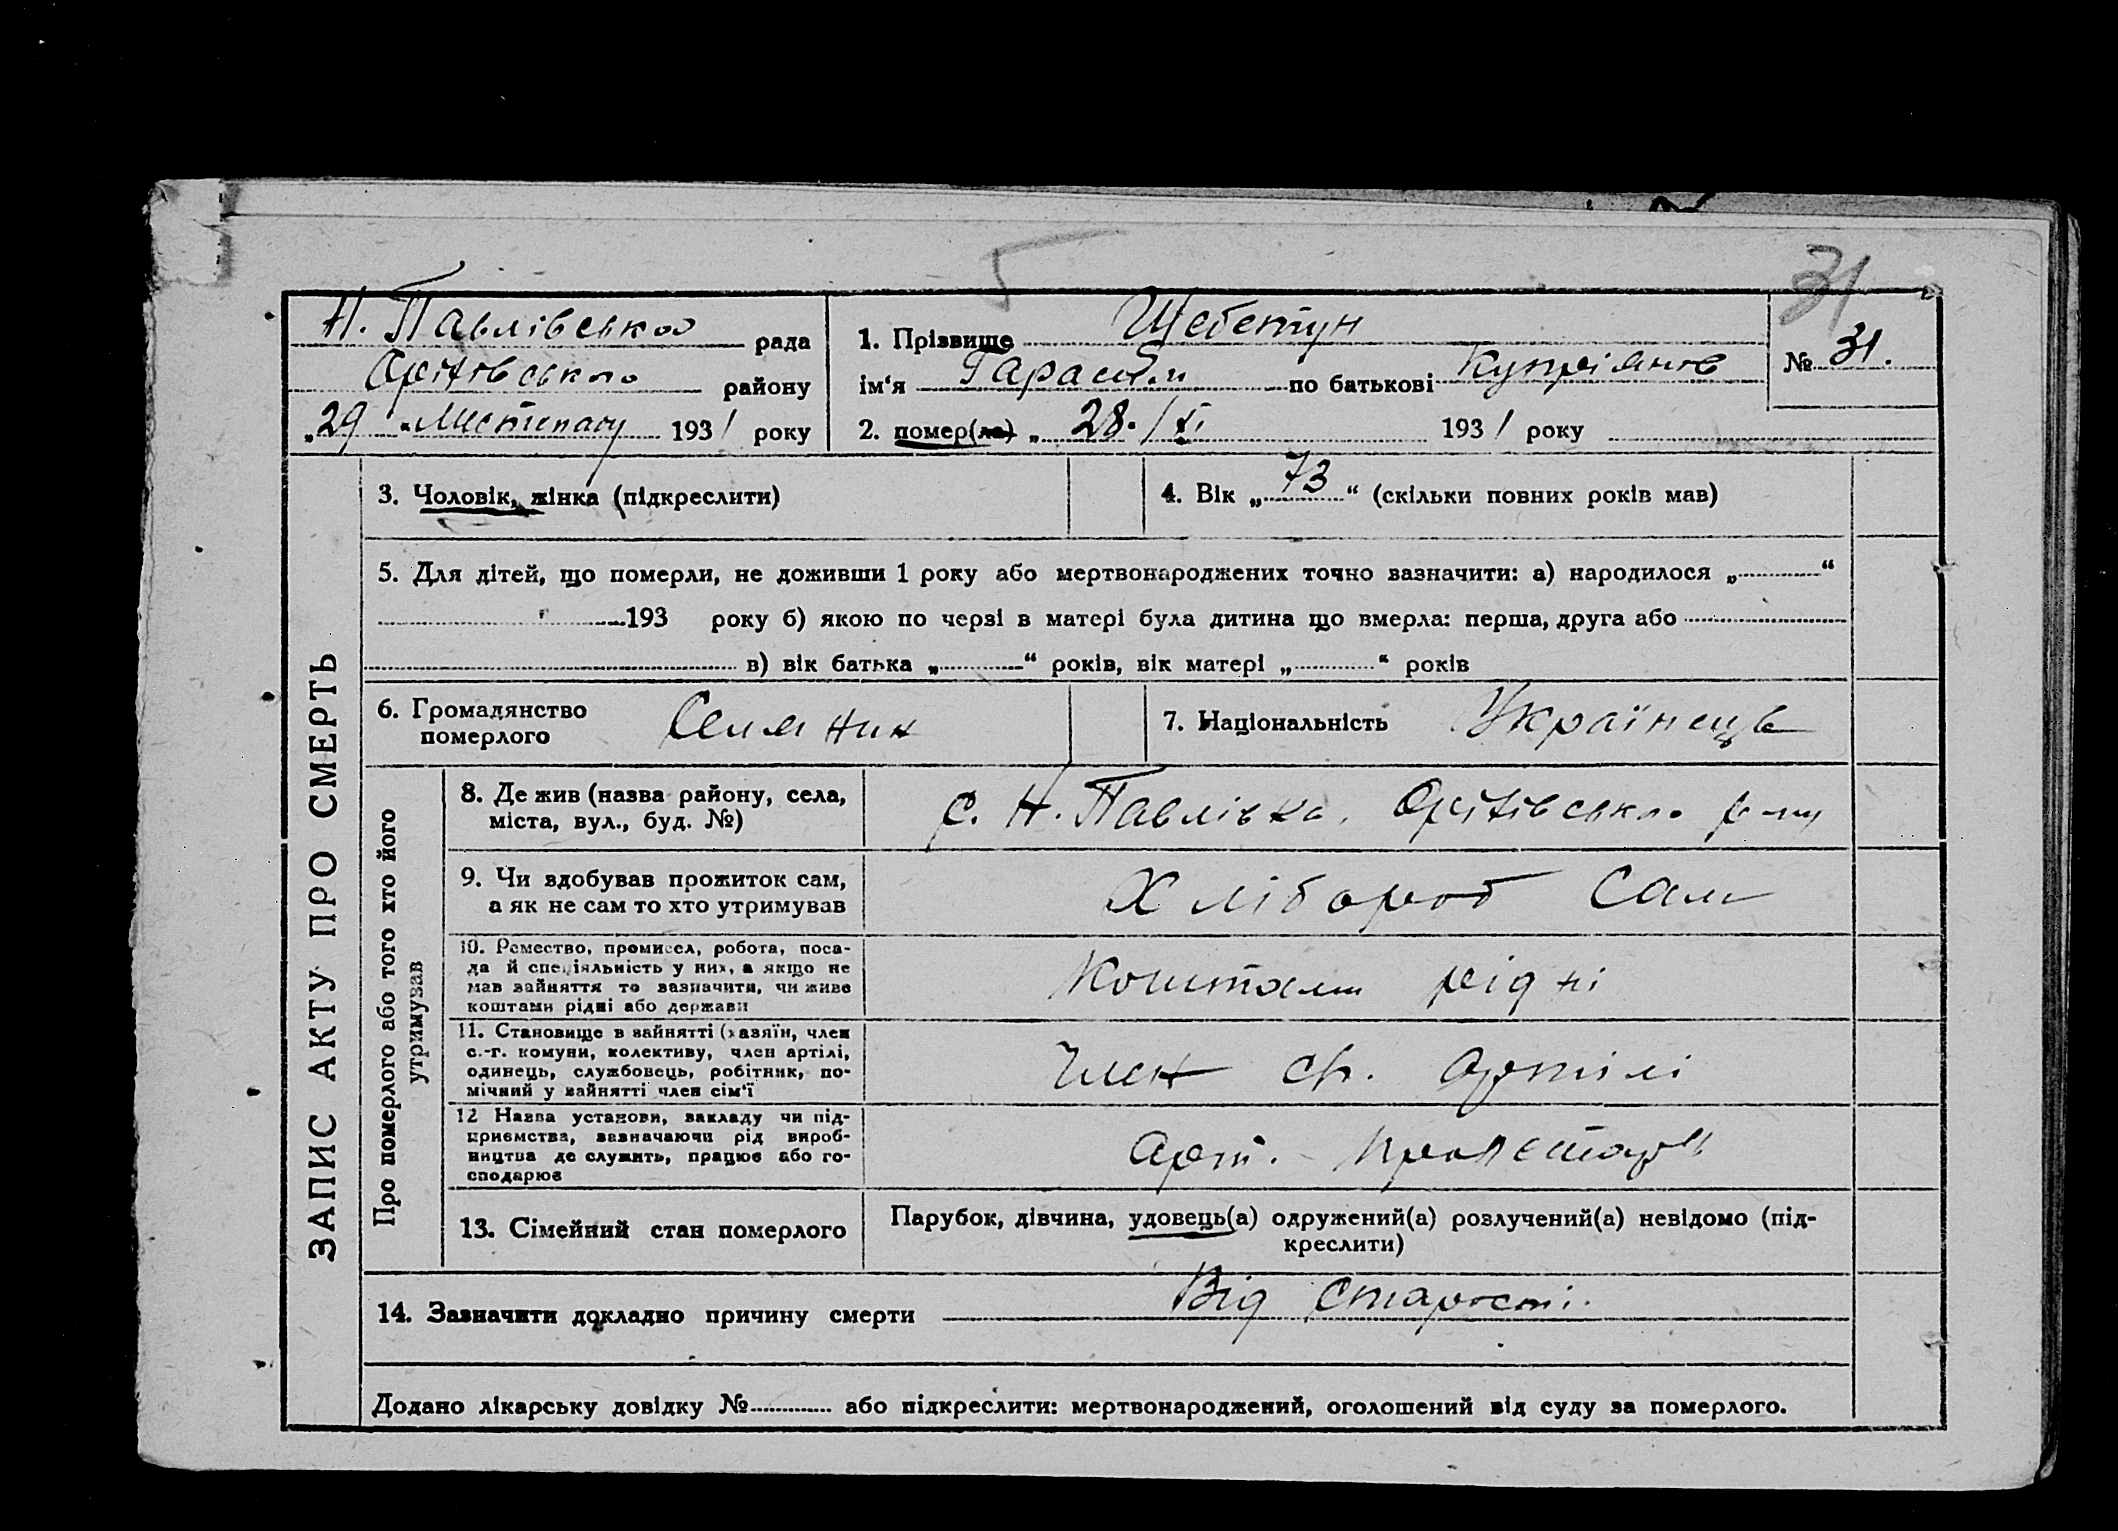 31
Н. Павлівської рада
Оріхівського району
„29 " Листопаду 1931 року
1. Прізвище Щебетун
ім‘я Гарасим по батькові Купріянов
2. помер(ла) „ 28./XI. 1931 року
№ 31.
ЗАПИС АКТУ ПРО СМЕРТЬ
3. Чоловік, жінка (підкреслити)
4. Вік „ 73 “ (скільки повних років мав)
5. Для дітей, що померли, не доживши 1 року або мертвонароджених точно зазначити: а) народилося „ “
193 року б) якою по черзі в матері була дитина що вмерла: перша, друга або
в) вік батька „ “ років, вік матері „ “ років
6. Громадянство
померлого
Селянин
7. Національність Українець
Про померлого або того хто його
утримував
8. Де жив (назва району, села,
міста, вул., буд. №)
с. Н. Павлівка, Оріхівського р-ну
9. Чи здобував прожиток сам,
а як не сам то хто утримував
Хлібороб сам
10. Ремество, промисел, робота, поса-
да й спеціяльність у них, а якщо не
мав зайняття то зазначити, чи живе
коштами рідні або держави
Коштами рідні
11. Становище в зайнятті (хазяїн, член
с.-г. комуни, колективу, член артілі,
одинець, службовець, робітник, по-
мічний у зайнятті член сім'ї
Член артілі
12 Назва установи, закладу чи під-
приємства, зазначаючи рід вироб-
ництва де служить, працює або го-
сподарює
Арт.
13. Сімейний стан померлого
Парубок, дівчина, удовець(а) одружений(а) розлучений(а) невідомо (під-
креслити)
14. Зазначити докладно причину смерти Від старости.
Додано лікарську довідку № або підкреслити: мертвонароджений, оголошений від суду за померлого.